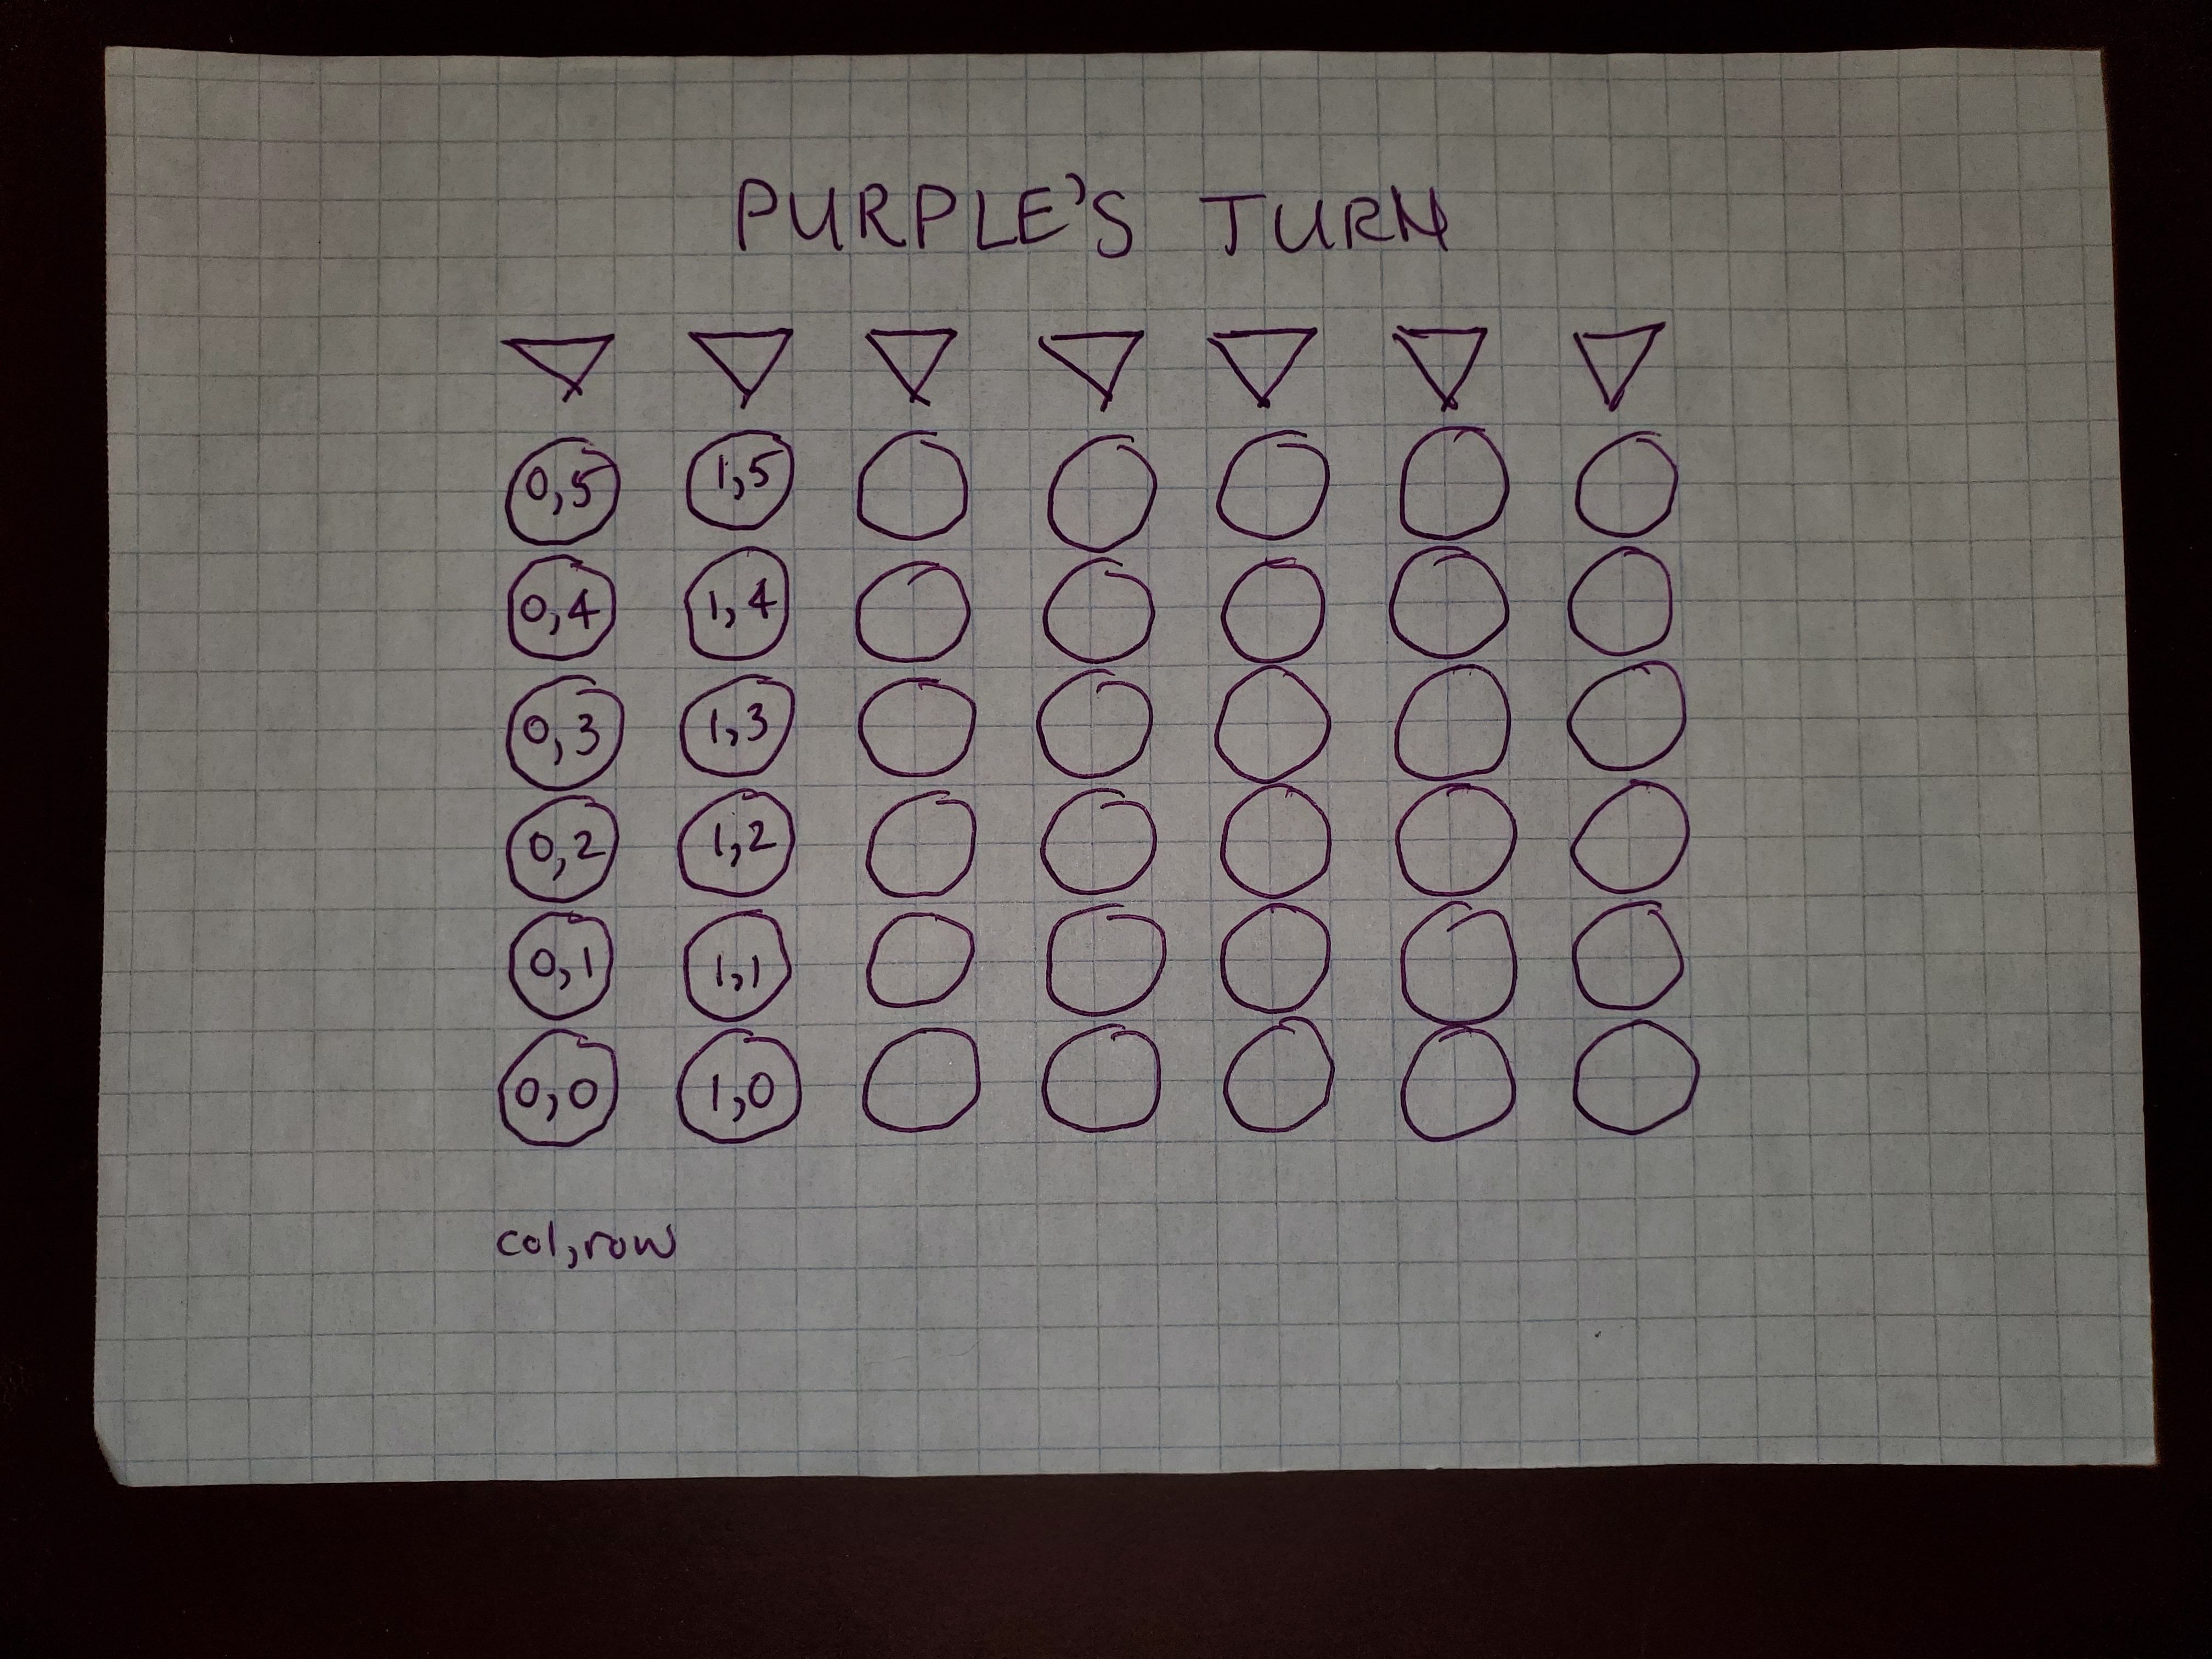 PURPLE'S TURN
0,5 1,5
0,4 1,4
0,3 1,3
0,2 1,2
0,1 1,1
0,0 1,0
col,row